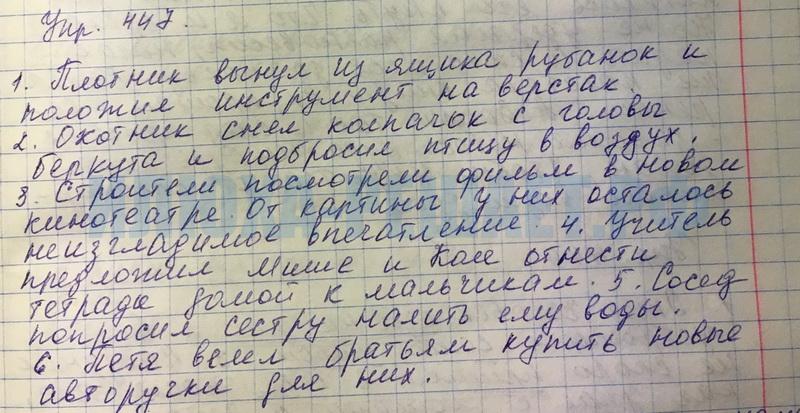 Упр. 447.
1. Плотник вынул из ящика рубанок и
положил инструмент на верстак
2. Охотник снел колпачок с головы
беркута и подбросил птицу в воздух.
3. Строители посмотрели фильм в новом
кинотеатре. От картины у них осталось
неизгладимое впечатление. 4. Учитель
предложил Мише и Коле отнести
тетради домой к мальчикам. 5. Сосед
попросил сестру налить ему воды.
6. Петя велел братьям купить новые
авторучки для них.